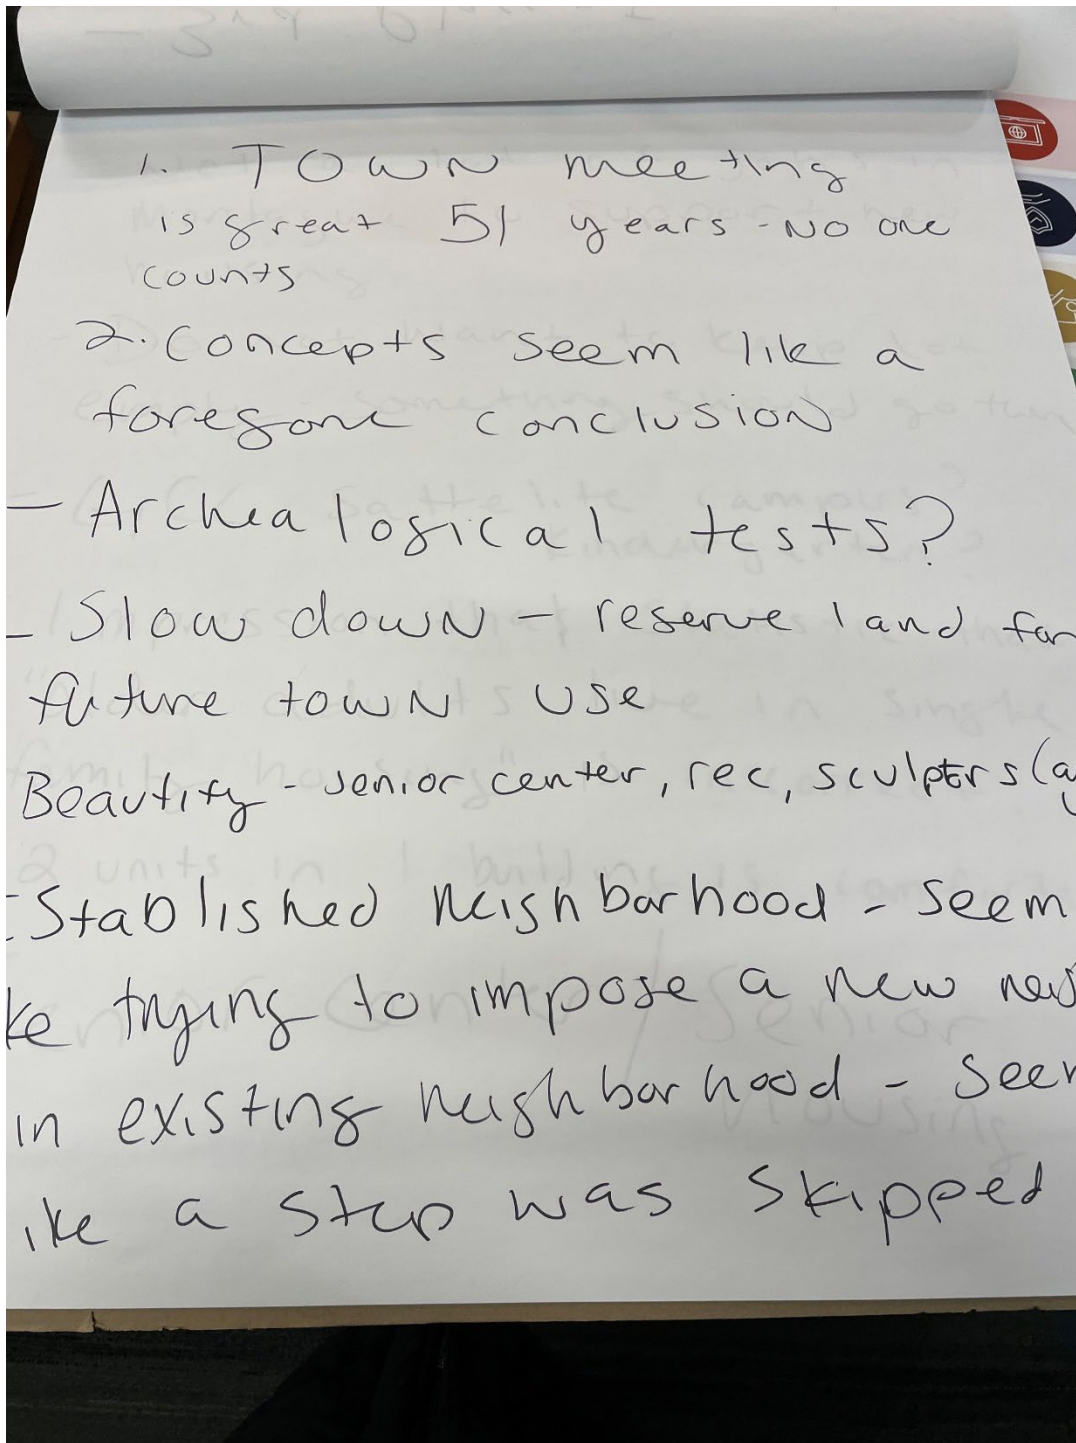 1. TOWN meeting
is great 51 years - NO one
counts
2. Concepts seem like a
foregone conclusion
- Archealogical tests?
- Slow down - reserve land for
future town use
Beautify - senior center, rec, sculptrs (a
- Established neighborhood - seem
ke trying to impose a new nei
in existing neighborhood - seem
like a step was skipped